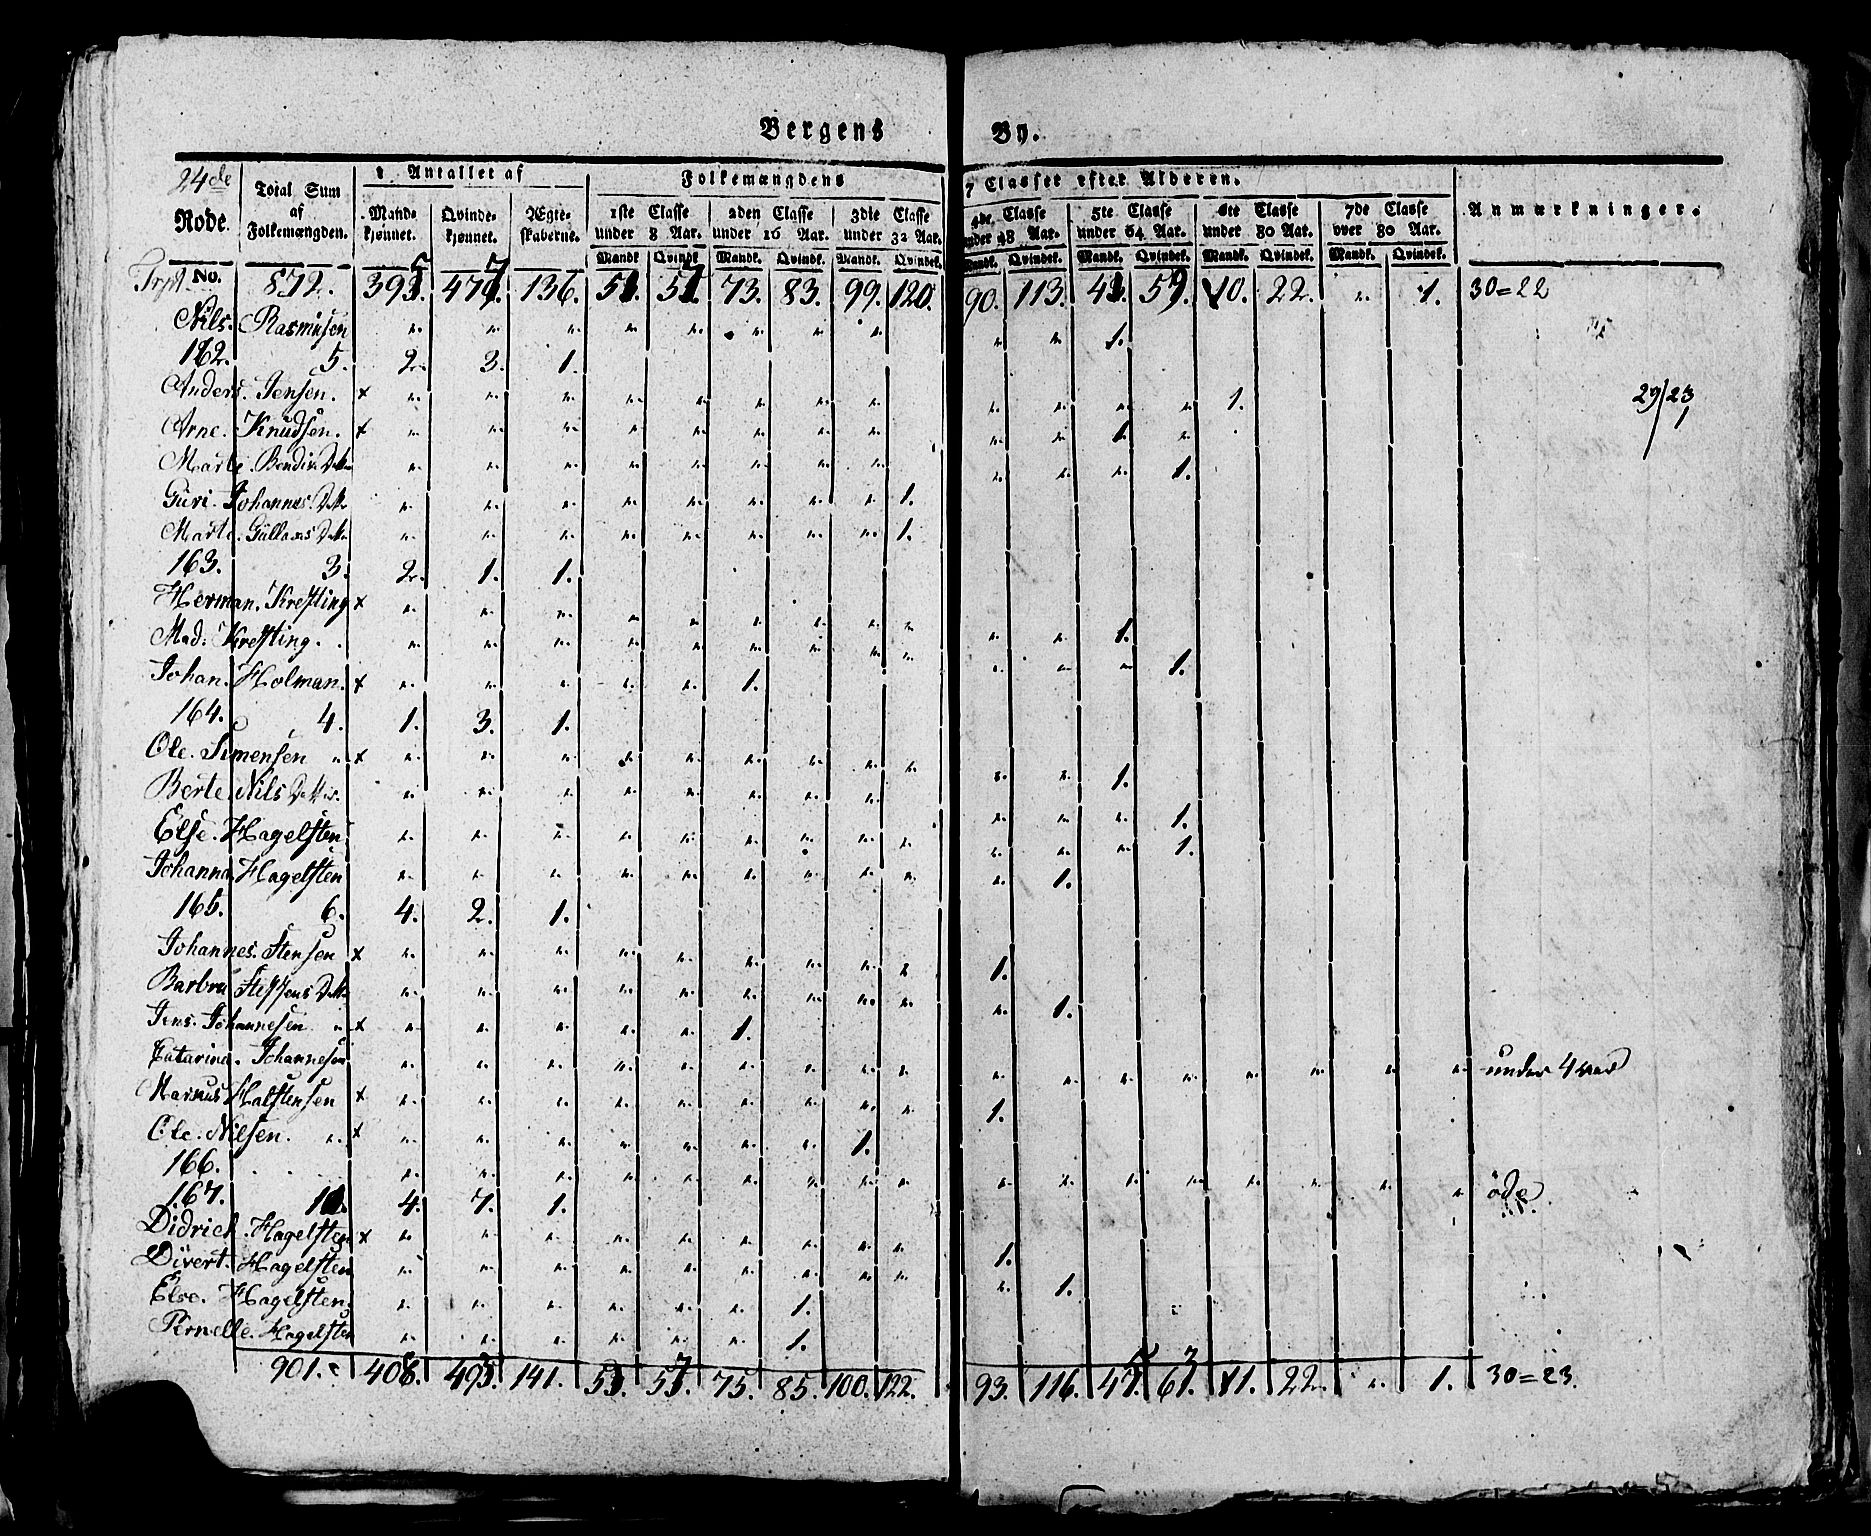 Bergens By.
24de Rode. Total Sum af Folkemængden. Antallet af Folkemængdens 7 Classer efter Alderen. Anmærkninger.
Mandkjønnet. Qvindekjønnet. Ægteskaberne. 1ste Classe under 8 Aar. 2den Classe under 16 Aar. 3die Classe under 32 Aar. 4de Classe under 48 Aar. 5te Classe under 64 Aar. 6te Classe under 80 Aar. 7de Classe over 80 Aar.
No. Mandk. Qvindek. Mandk. Qvindek. Mandk. Qvindek. Mandk. Qvindek. Mandk. Qvindek. Mandk. Qvindek. Mandk. Qvindek.
872. 136. 73. 83. 99. 120. 90. 113. 10. 22. " 1. 30=22
Nils. Rasmusen " " " " " " " " " " 1.
162. 5. 2. 3. 1.
Anders. Jensen. x " " " " " " " " " " " " 1. 29/23
Arne. Knudsen. x " " " " " " " " " " 1. " 1
Marte. Bendix Dtt " " " " " " " " " " " 1.
Guri. Johannes. Dtt " " " " " " " " 1.
Marte. Gullaks Dtt " " " " " " " " 1.
163. 3. 2. 1. 1.
Herman. Krefting x " " " " " " " " " " " 1.
Mad: Krefting. " " " " " " " " " " " " 1.
Johan. Holman. x " " " " " 1.
164. 4. 1. 3. 1.
Ole. Simensen " x " " " " " " " " " " " 1.
Berte Nils Dtter. " " " " " " " " " " " 1.
Else. Hagelsten " " " " " " " " " " " " 1.
Johanna Hagelsten " " " " " " " " " " 1.
165. 6. 4. 2. 1.
Johannes. Stensen x " " " " " " " " " 1.
Barbru Steffens Dtt " " " " " " " " " " 1.
Jens. Johannesen " x " " " " " 1.
Catarina. Johannesen " " " " " " " " " " " " " " " " " under 4 var
Marcus Halstensen x " " " " " " " " " 1.
Ole. Nilsen. " x " " " " " " " 1.
166. " " " " " " " " " " " " " " " " " öde
167. 11. 4. 7. 1.
Didrich. Hagelsten x " " " " " " " " " 1.
Divert. Hagelsten " " " " " " " " " " 1.
Else. Hagelsten. " " " " " " 1.
Pernelle. Hagelsten " " " " " " 1.
901. 141. 75. 85. 100. 122. 93. 116. 11. 22. " 1. 30=23.